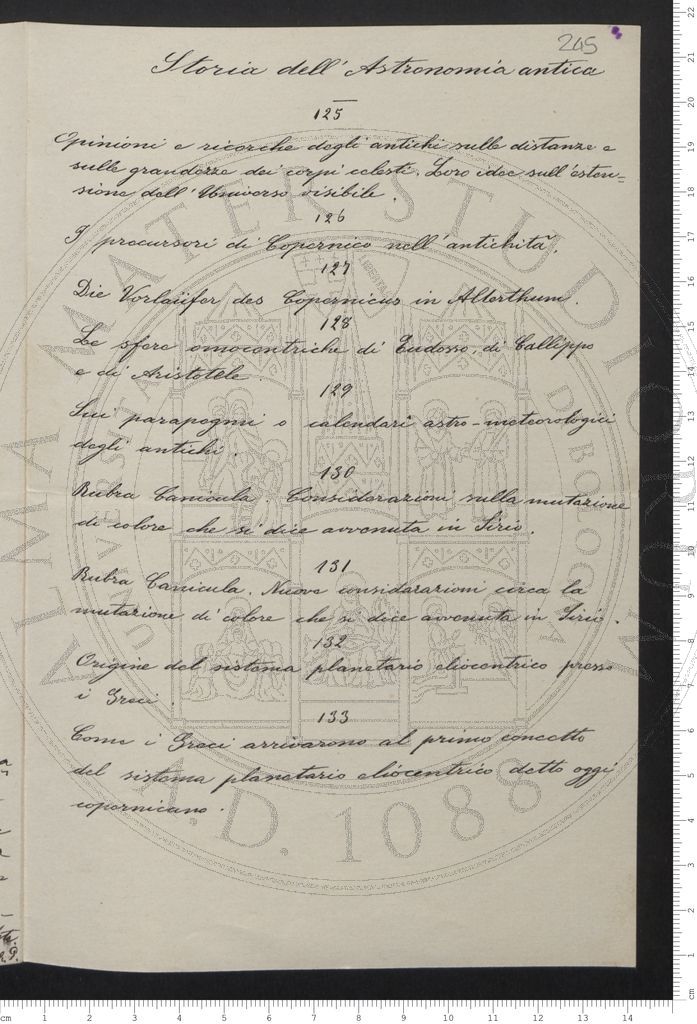 205
Storia dell'Astronomia antica
125
Opinioni e ricerche degli antichi sulle distanze e
sulle grandezze dei corpi celesti. Loro idee sull'esten=
sione dell'Universo visibile.
126
I precursori di Copernico nell'antichità.
127
Die Vorläüfer des Copernicus in Alterthum.
128
Le sfere omocentriche di Eudosso, di Callippo
e di Aristotele.
129
Sui parapegmi o calendari astro-meteorologici
degli antichi.
130
Rubra Canicula. Considerazioni sulla mutazione
di colore che si dice avvenuta in Sirio.
131
Rubra Canicula. Nuove considerazioni circa la
mutazione di colore che si dice avvenuta in Sirio.
132
Origine del sistema planetario eliocentrico presso
i Greci.
133
Come i Greci arrivarono al primo concetto
del sistema planetario eliocentrico detto oggi
copernicano.
ALMA MATER STUDIORUM
A.D. 1088